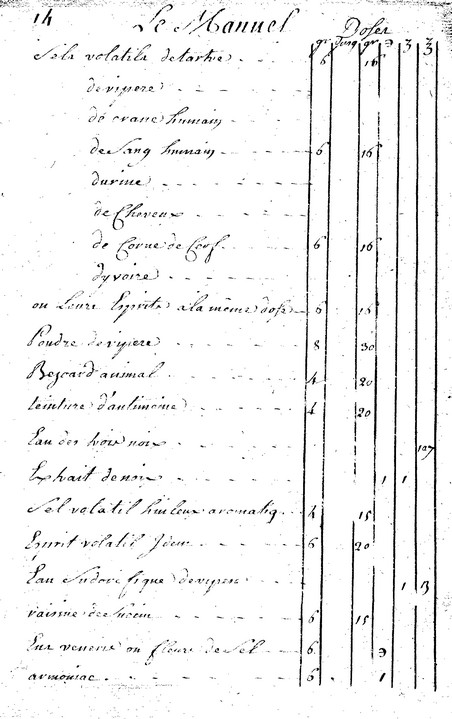 14 Le Manuel Doses
gr jusq gr ℈ ʒ ℥
Sels volatils de tartre 6 16
de vipere
de crane humain
de Sang humain 6 16
durine
de Cheveux
de Corne de Cerf 6 16
dyvoire
ou Leurs Esprits a la même dose 6 15
Poudre de vipere 8 30
Bezoard animal 4 20
teinture d'antimoine 4 20
Eau des trois noix
Extrait de noix 1 1
Sel volatil huileux aromatiq 4 15
Esprit volatil 6 20
Eau Sudorifique de vipere 1
raisine de Sucin 6 15
Ens veneris ou fleurs de Sel 6 ℈
armoniac 6 1